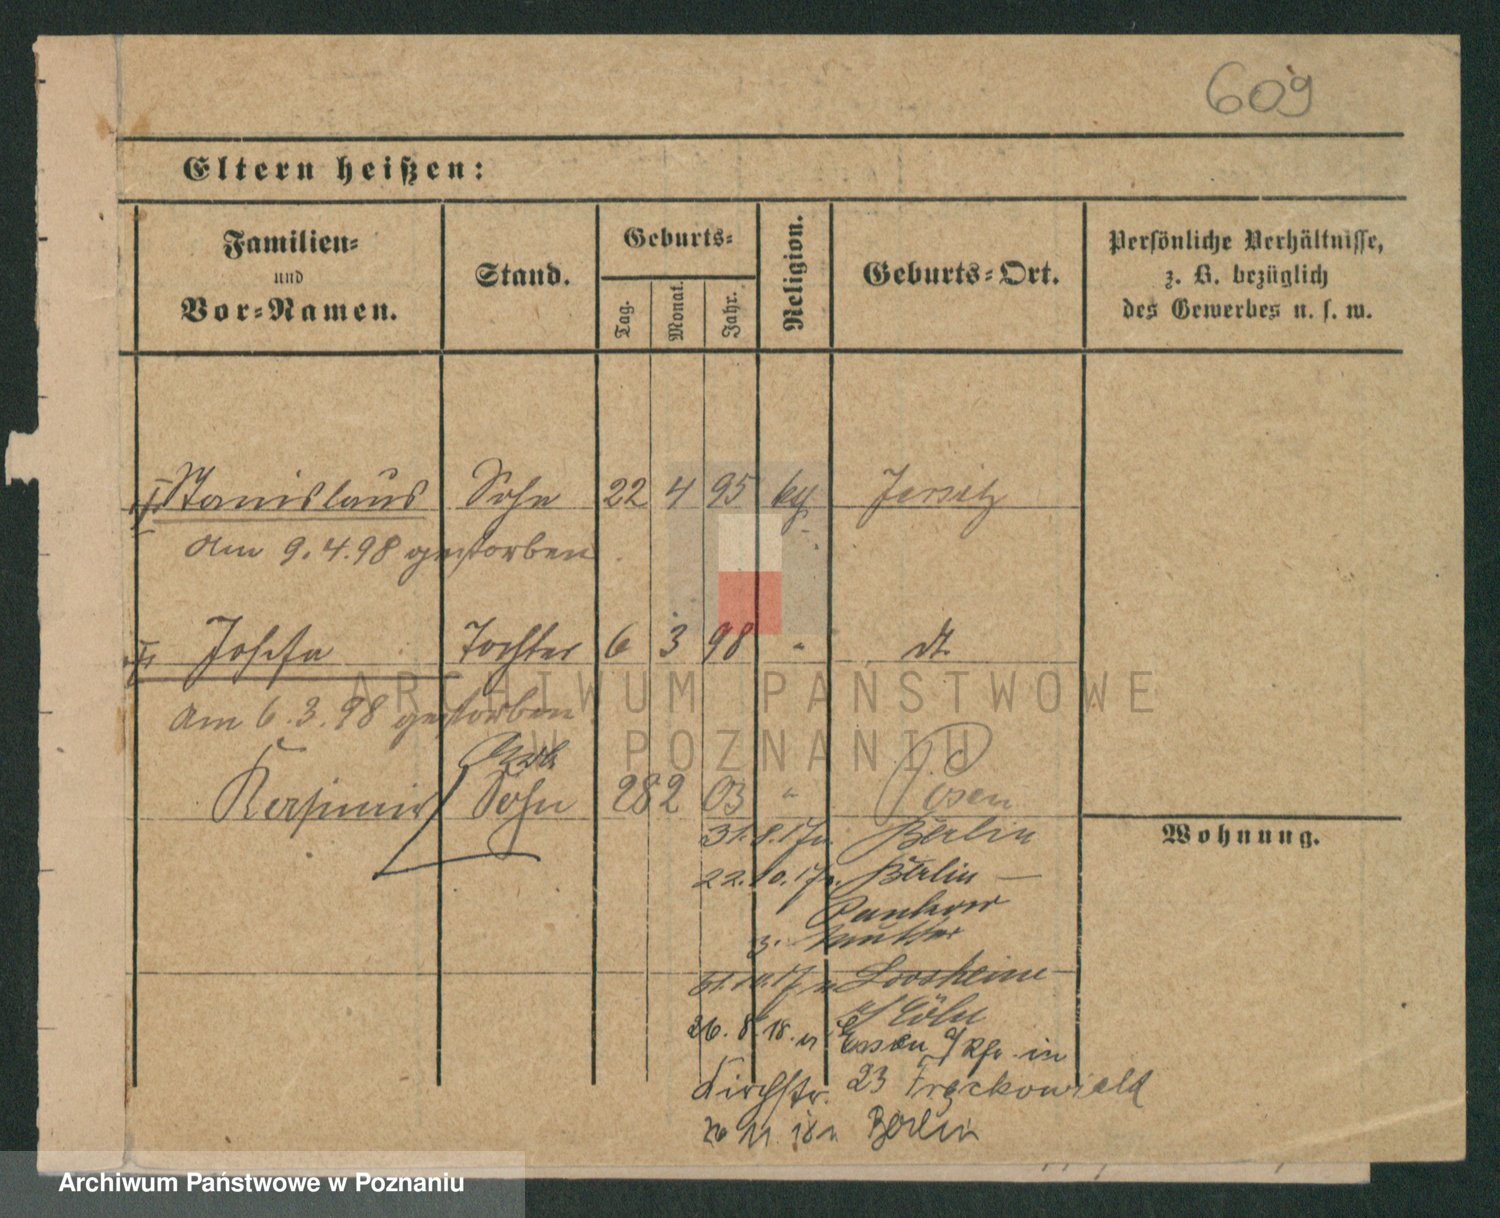 609
Eltern heißen:
Familien-
und
Vor-Namen.
Stand.
Geburts-
Tag.
Monat.
Jahr.
Religion.
Geburts-Ort.
Persönliche Verhältnisse,
z. B. bezüglich
des Gewerbes u. s. w.
Stanislaus Sohn 22 4 95 Jersitz
Am 9.4.98 gestorben
Josefa Tochter 6 3 98 " dt.
Am 6.3.98 gestorben
Kasimir Sohn 28 2 03 " Posen
Wohnung.
31.8.17 n. Berlin
22.10.17 n. Berlin –
Pankow
31.10.17 n.
Cöln
26.8.18. n Essen a/Rh. in
Kirchstr. 23 Frackowiak
11. 18 n Berlin
ARCHIWUM PAŃSTWOWE
W POZNANIU
Archiwum Państwowe w Poznaniu